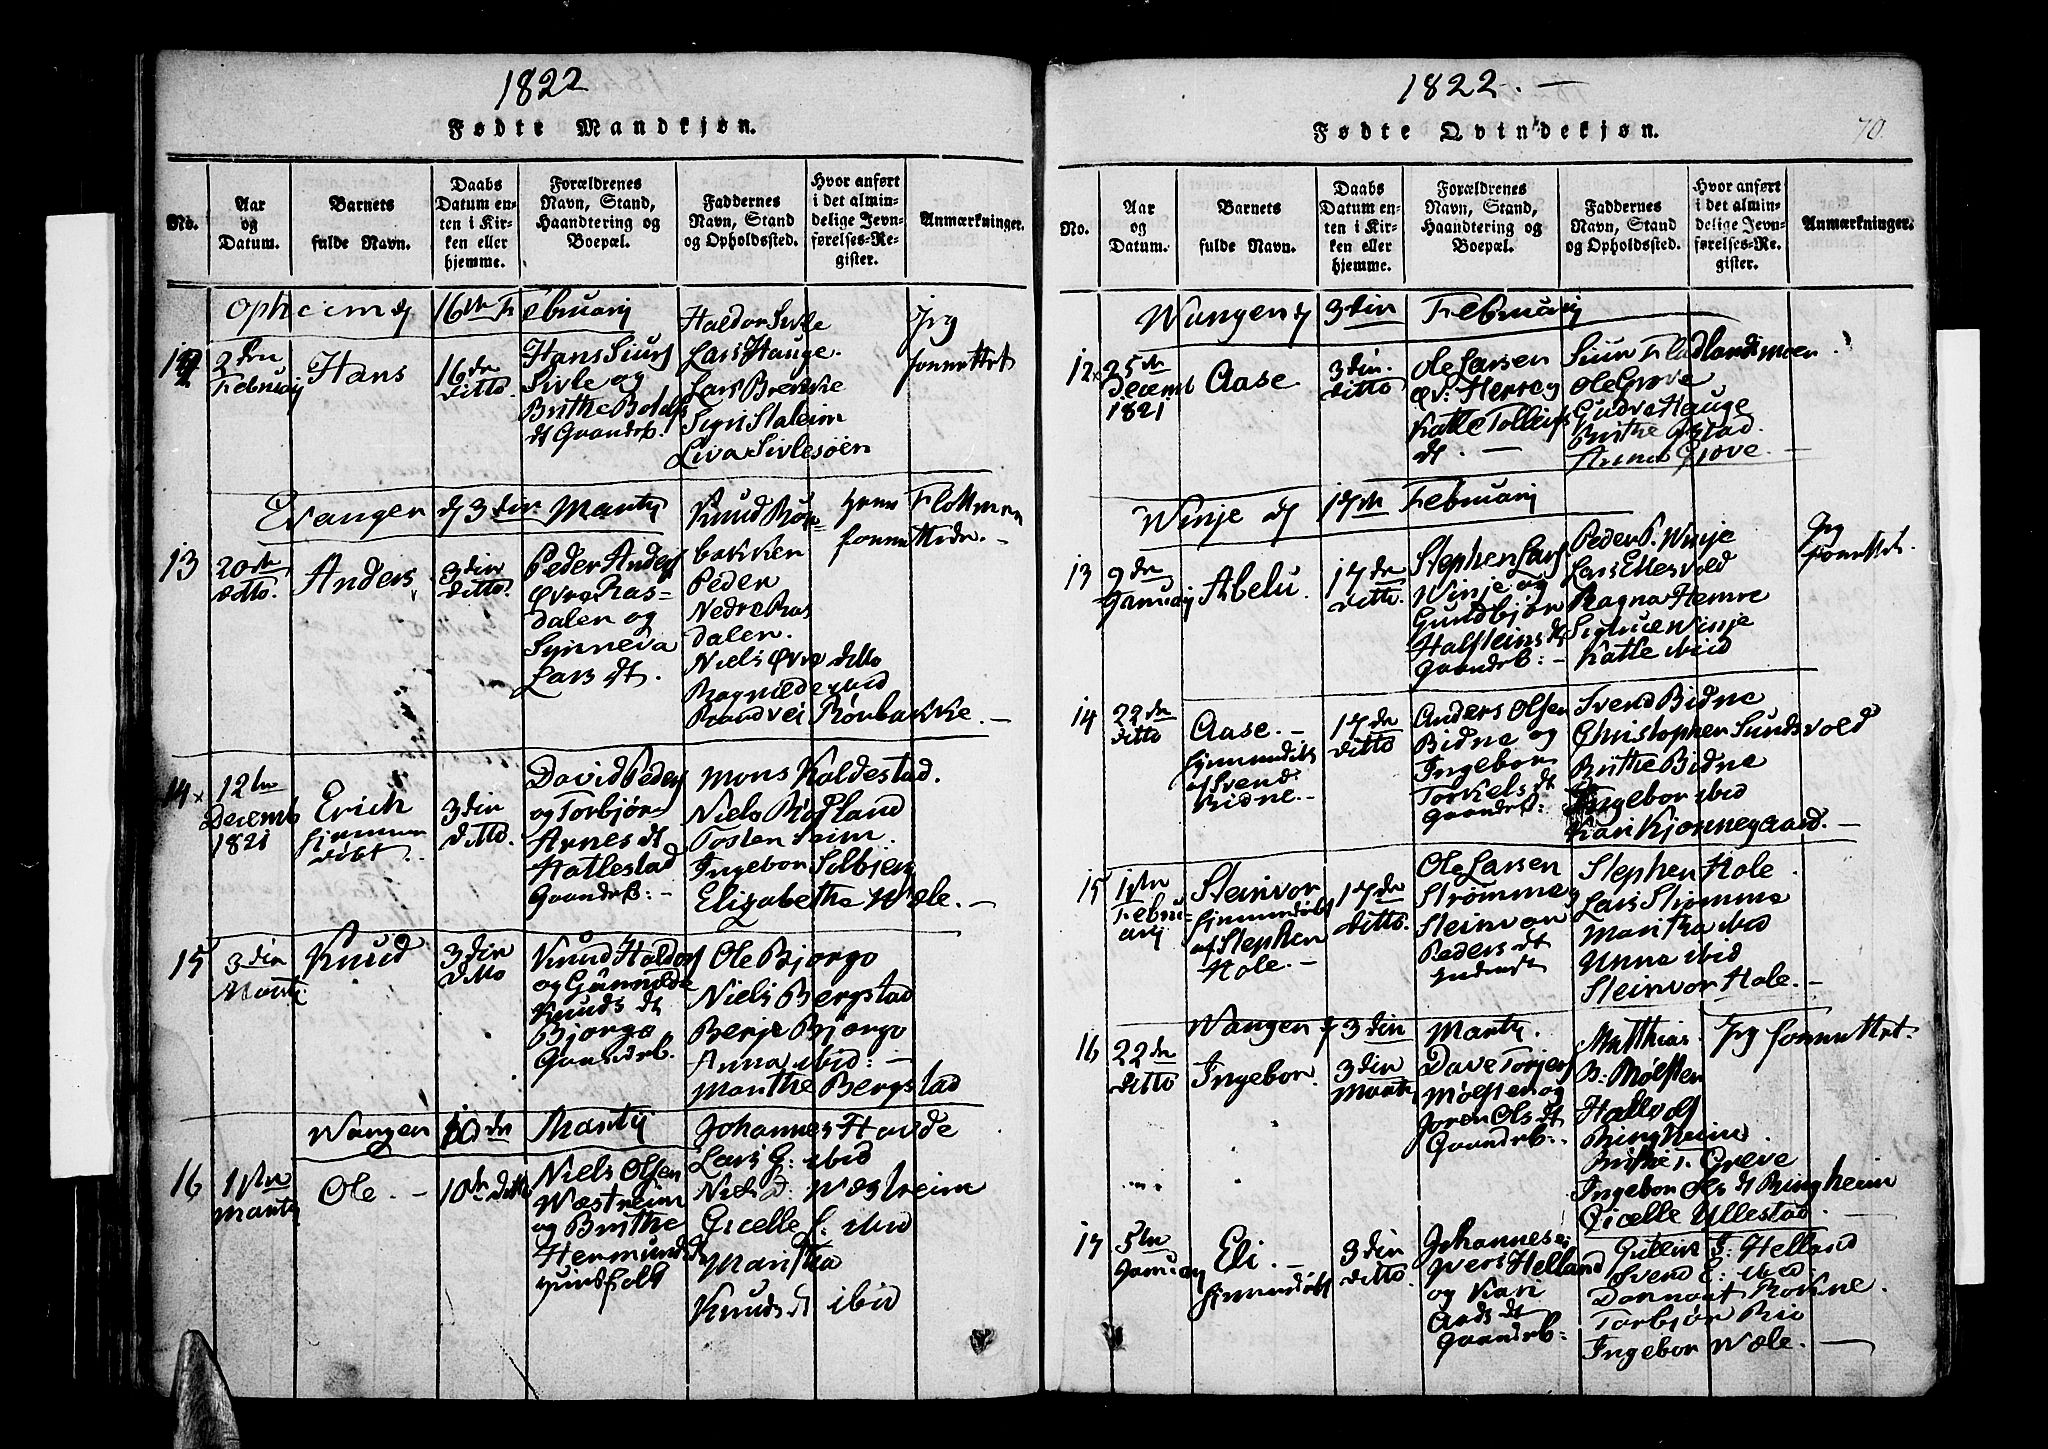 1822
Fødte Mandkjøn.
No.
Aar
og
Datum.
Barnets
fulde Navn.
Daabs
Datum en-
ten i Kir-
ken eller
hjemme.
Forældrenes
Navn, Stand,
Haandtering og
Boepæl.
Faddernes
Navn, Stand
og Opholdssted.
Hvor anført
i det almin-
delige Jevn-
førelses-Re-
gister.
Anmærkninger.
Opheim d 16de Februarij
12
2den
Februarij
Hans
16de
ditto
Hans Siurs
Sivle og
Brithe
dt Gaardb.
Haldor Sivle
Lars Hauge.
Lars Brekke
Sigri Stalem
Liva Sivlesøen
Jeg
forrettet
Evanger d 3die Martij
13
20de
ditto.
Anders
3die
ditto.
Peder Anders
Øvre Ras-
dalen og
Synneva
Lars dt.
Knud Røn-
bakken
Peder
Nedre Ras
dalen.
Niels Øvre ditto
Ragnilde ibid
Brandvei Rønbakke. —
forrettede. —
14 x
12te
Decemb
1821
Erich
hjemme
døbt.
3die
ditto.
David Peders
og Torbjør
Arnes dt
Hatlestad
Gaardb: —
Mons Kaldestad.
Niels Røfland
Tosten Seim
Ingebor Solbjerg
Elizabetha Wæle. —
15
3die
Martij.
Knud
3die
ditto
Knud Haldors
og Gunnilde
Knuds dt
Bjorgo
Gaardb.
Ole Bjorgo
Niels Bergstad
Berje Bjorgo
Anna ibid: —
Marithe Bergstad
Wangen 10de Martij
16
1ste
Martij
Ole. —
10de ditto
Niels Olsen
Wæstreim
og Brithe
Hermunds dt
huusfolk
Johannes Havde
Lars G: ibid
Niels D: Wæstreim
Gicelle S: ibid
Maritha
Knuds dt ibid
1822. —
Fødte Qvindekjøn.
70.
No.
Aar
og
Datum.
Barnets
fulde Navn.
Daabs
Datum en-
ten i Kir-
ken eller
hjemme.
Forældrenes
Navn, Stand,
Haandtering og
Boepæl.
Faddernes
Navn, Stand
og Opholdssted.
Hvor anført
i det almin-
delige Jevn-
førelses-Re-
gister.
Anmærkninger.
Wangen d 3die Februarij
12 x
25de
Decemb
1821
Aase
3die.
ditto
Ole Larsen
Katle Tolleifs
dt. —
Siur Fladlandsmoen
Ole Grove
Gudva Hauge
Brithe
Anna Grove. —
Winje d 17de Februarij
13
9de
Januarij
Abelu.
17de
ditto.
Stephen Lars
Winje og
Gundbjør
Halsteins dt
Gaardb: —
Peder P. Winje
Lars Ellesvold
Ragna Hemre
Sigtrue Winje
Katle ibid
Jeg
forrettet.
14
22de
ditto
Aase. —
hjemmedøbt
af Svend
Bidne. —
17de
ditto
Anders Olsen
Bidne og
Ingebor
Torkels dt
Gaardb:
Svend Bidne
Christopher Sundsvold
Brithe Bidne
Ingebor ibid
Kari Kjønnegaard. —
15
1ste
Febru-
arij
Steinvor
hjemmedøbt
af Stephen
Hole. —
17de
ditto.
Ole Larsen
Strømme
Steinvor
Peders dt
Stephen Hole.
Lars Strømme
Maritha ibid
Unna ibid
Steinvor Hole. —
Wangen d 3die Martij.
16
22de
ditto
Ingebor.
3die
Martij
Dave Torjers
Mølster og
Joren Ols dt
Gaardb:.
Matthias
B: Mølster
Hallvof
Ringheim.
Brithe T. Greve
Ingebor Ols dt Ringheim
Gicelle Ullestad. —
Jeg forrettet.
17
5te
Januarij
Eli. —
hjemmedøbt
3die
ditto.
Johannes
Ivers Helland
og Kari
Ands dt
Gaardb:
Gullik J: Helland
Svend E: ibid
Rokne.
Torbjør Rio
Ingebor Wæle. —